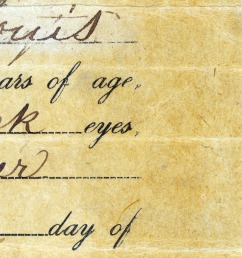 ouis
ars of age,
k eyes,
er
day of